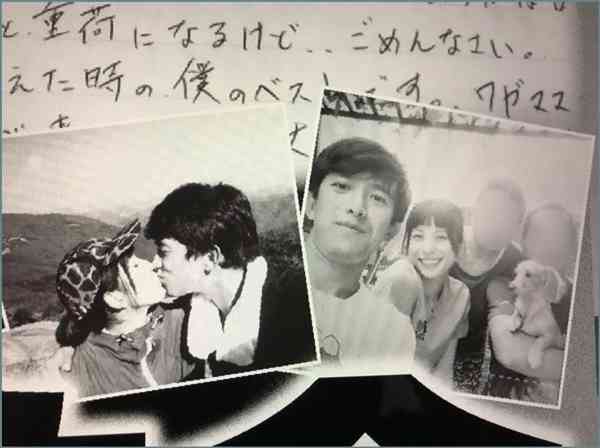 と、重荷になるけど‥ごめんなさい。
えた時の僕のベストです。ワガママ